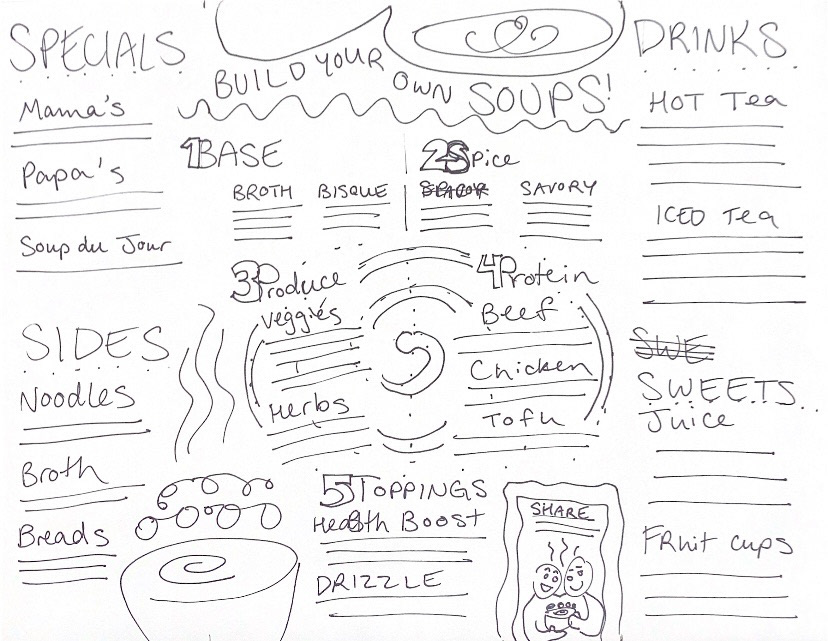 SPECIALS
Mama's
Papa's
Soup du Jour
SIDES
Noodles
Broth
Breads
BUILD YOUR OWN SOUPS!
1 BASE
BROTH
BISQUE
2 Spice
SAVORY
3 Produce
Veggies
Herbs
4 Protein
Beef
Chicken
Tofu
5 TOPPINGS
Health Boost
DRIZZLE
SHARE
DRINKS
HOT Tea
ICED Tea
SWE
SWEETS
Juice
FRuit cups